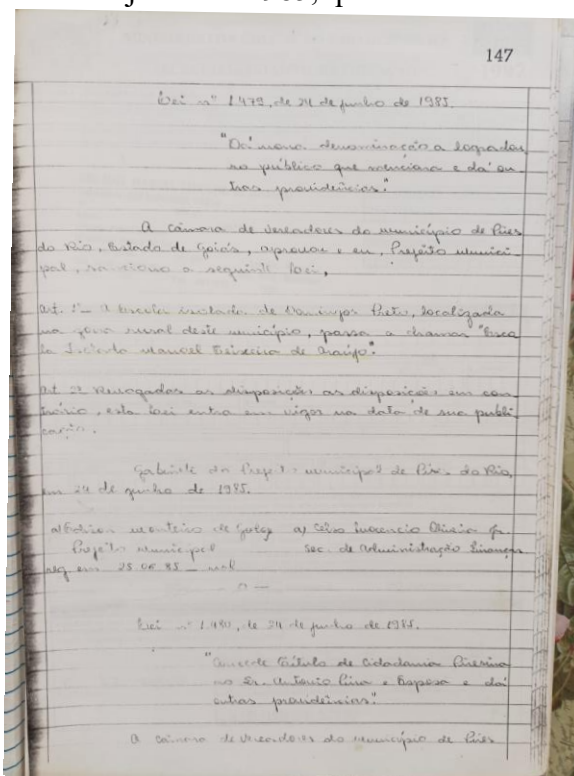 147
Lei nº 1.479, de 24 de junho de 1985.
"Dá nova denominação a logradou
ro público que menciona e dá ou
tras providências."
A câmara de vereadores do município de Pires
do Rio, Estado de Goiás, aprovou e eu, Prefeito Munici
pal, sanciono a seguinte Lei,
Art. 1º - A Escola isolada de Domingos Preto, localizada
na zona rural deste município, passa a chamar "Esco
la Isolada Manoel Teixeira de Araújo".
Art. 2º Revogadas as disposições as disposições em con
trário, esta Lei entra em vigor na data de sua publi
cação.
Gabinete do Prefeito municipal de Pires do Rio,
em 24 de junho de 1985.
a) monteiro de a) Célio Inocencio Oliveira
Prefeito Municipal Sec. de Administração Finanças
reg em 25.06.85
Lei nº 1.480, de 24 de junho de 1985.
"Concede Título de Cidadania Piresina
ao Sr. Antonio Lina e Esposa e dá
outras providências."
A câmara de vereadores do município de Pires